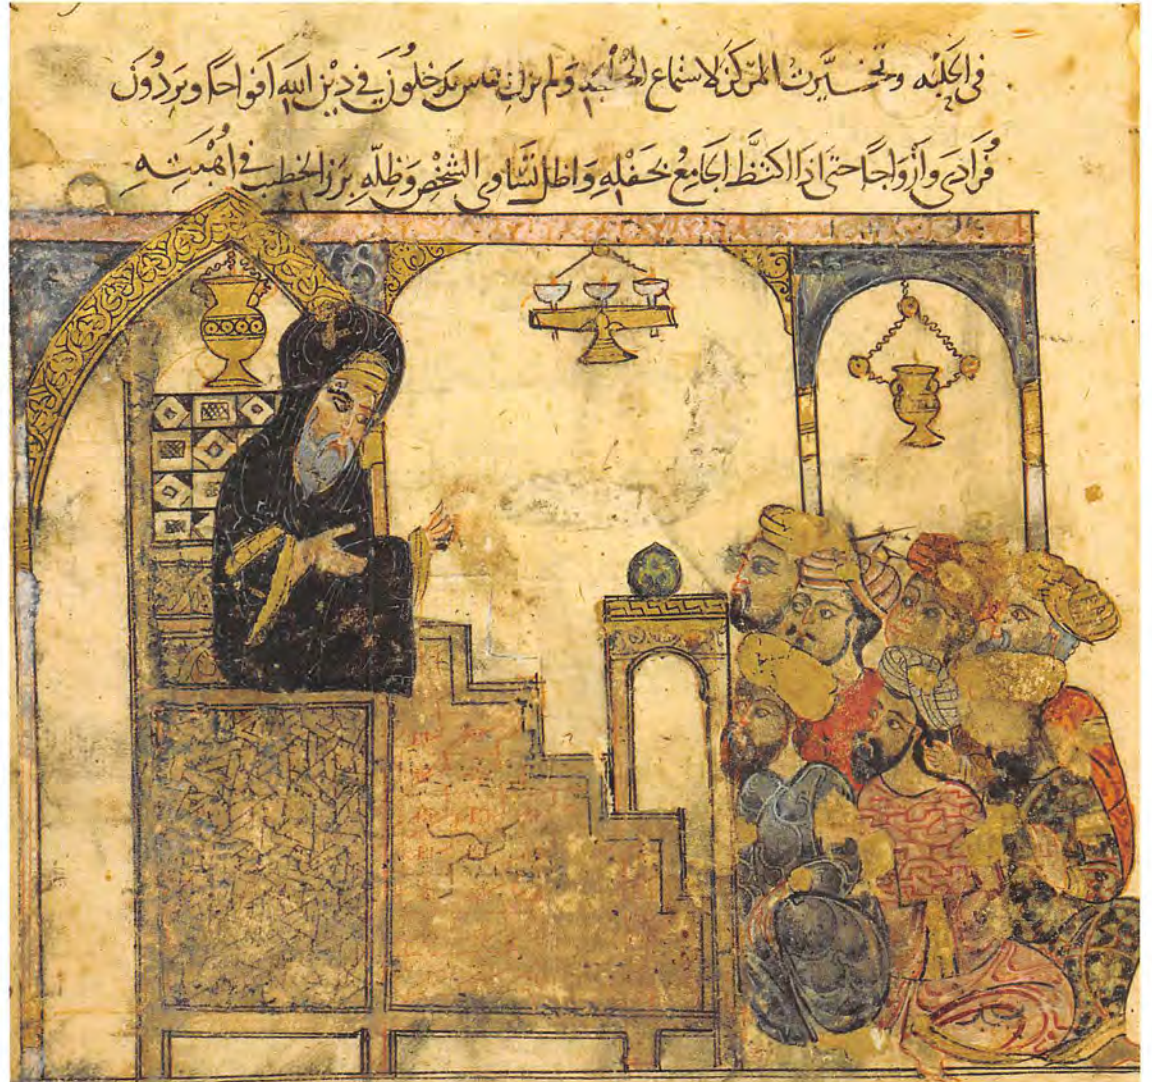 في الحلبه وتخيَّرتُ المركز لاستماع الخطبه ولم يزل الناس يدخلون في دين الله افواجا ويردونَ
فُرادى وأزواجًا حتى اذا اكتظَّ الجامعُ بحفلِهِ واظل تساوي الشخص وظلّه برز الخطيب في اُهْبتِهِ